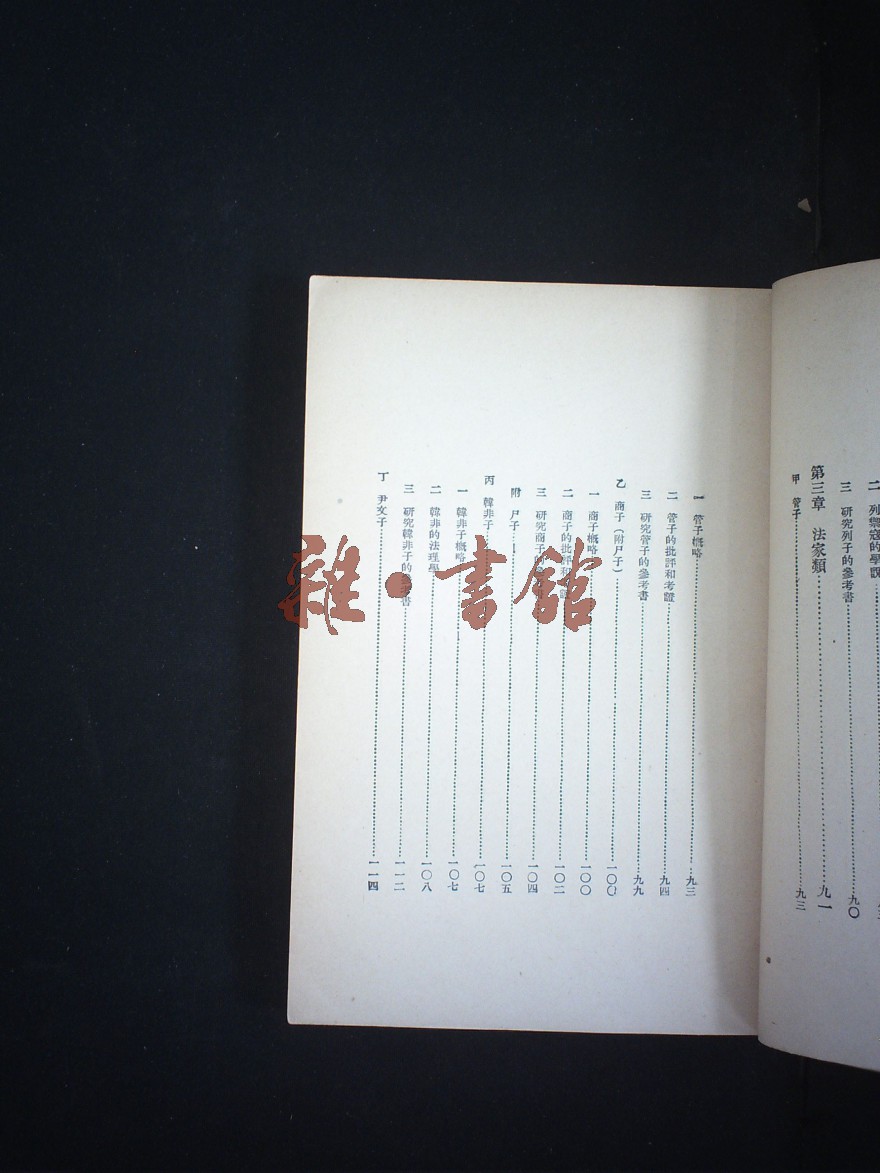 二 列禦寇的學課
三 研究列子的參考書……九〇
第三章 法家類……九一
甲 管子……九三
一 管子概略……九三
二 管子的批評和考證……九四
三 研究管子的參考書……九九
乙 商子（附尸子）……一〇〇
一 商子概略……一〇〇
二 商子的批評和考證……一〇二
三 研究商子的參考書……一〇四
附 尸子……一〇五
丙 韓非子……一〇七
一 韓非子概略……一〇七
二 韓非的法理學……一〇八
三 研究韓非子的參考書……一一二
丁 尹文子……一一四
雜·書館